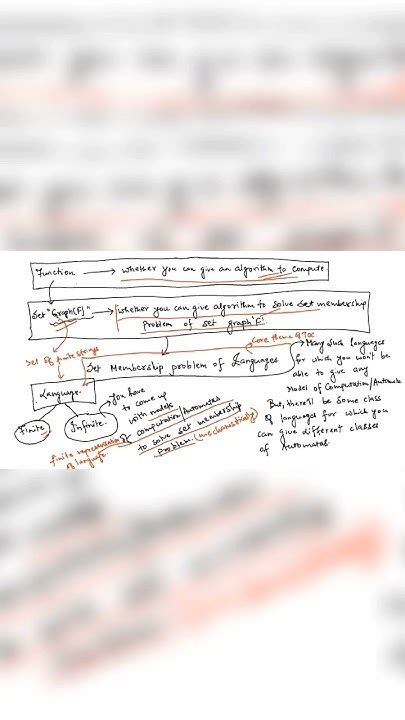 Function → whether you can give an algorithm to compute
Set "Graph(F)" → whether you can give algorithm to solve set membership
Problem of set graph'F'.
Core theme of TOC
Set of finite strings
Set Membership problem of Languages
Language
Finite
Infinite
You have
to come up
with models
of computation/Automatas
to solve set membership
Problem. (mechanistically)
finite representation
of language
Many such languages
for which you won't be
able to give any
Model of Computation/Automata
But, there'll be some class
of languages for which you
can give different classes
of Automatas.